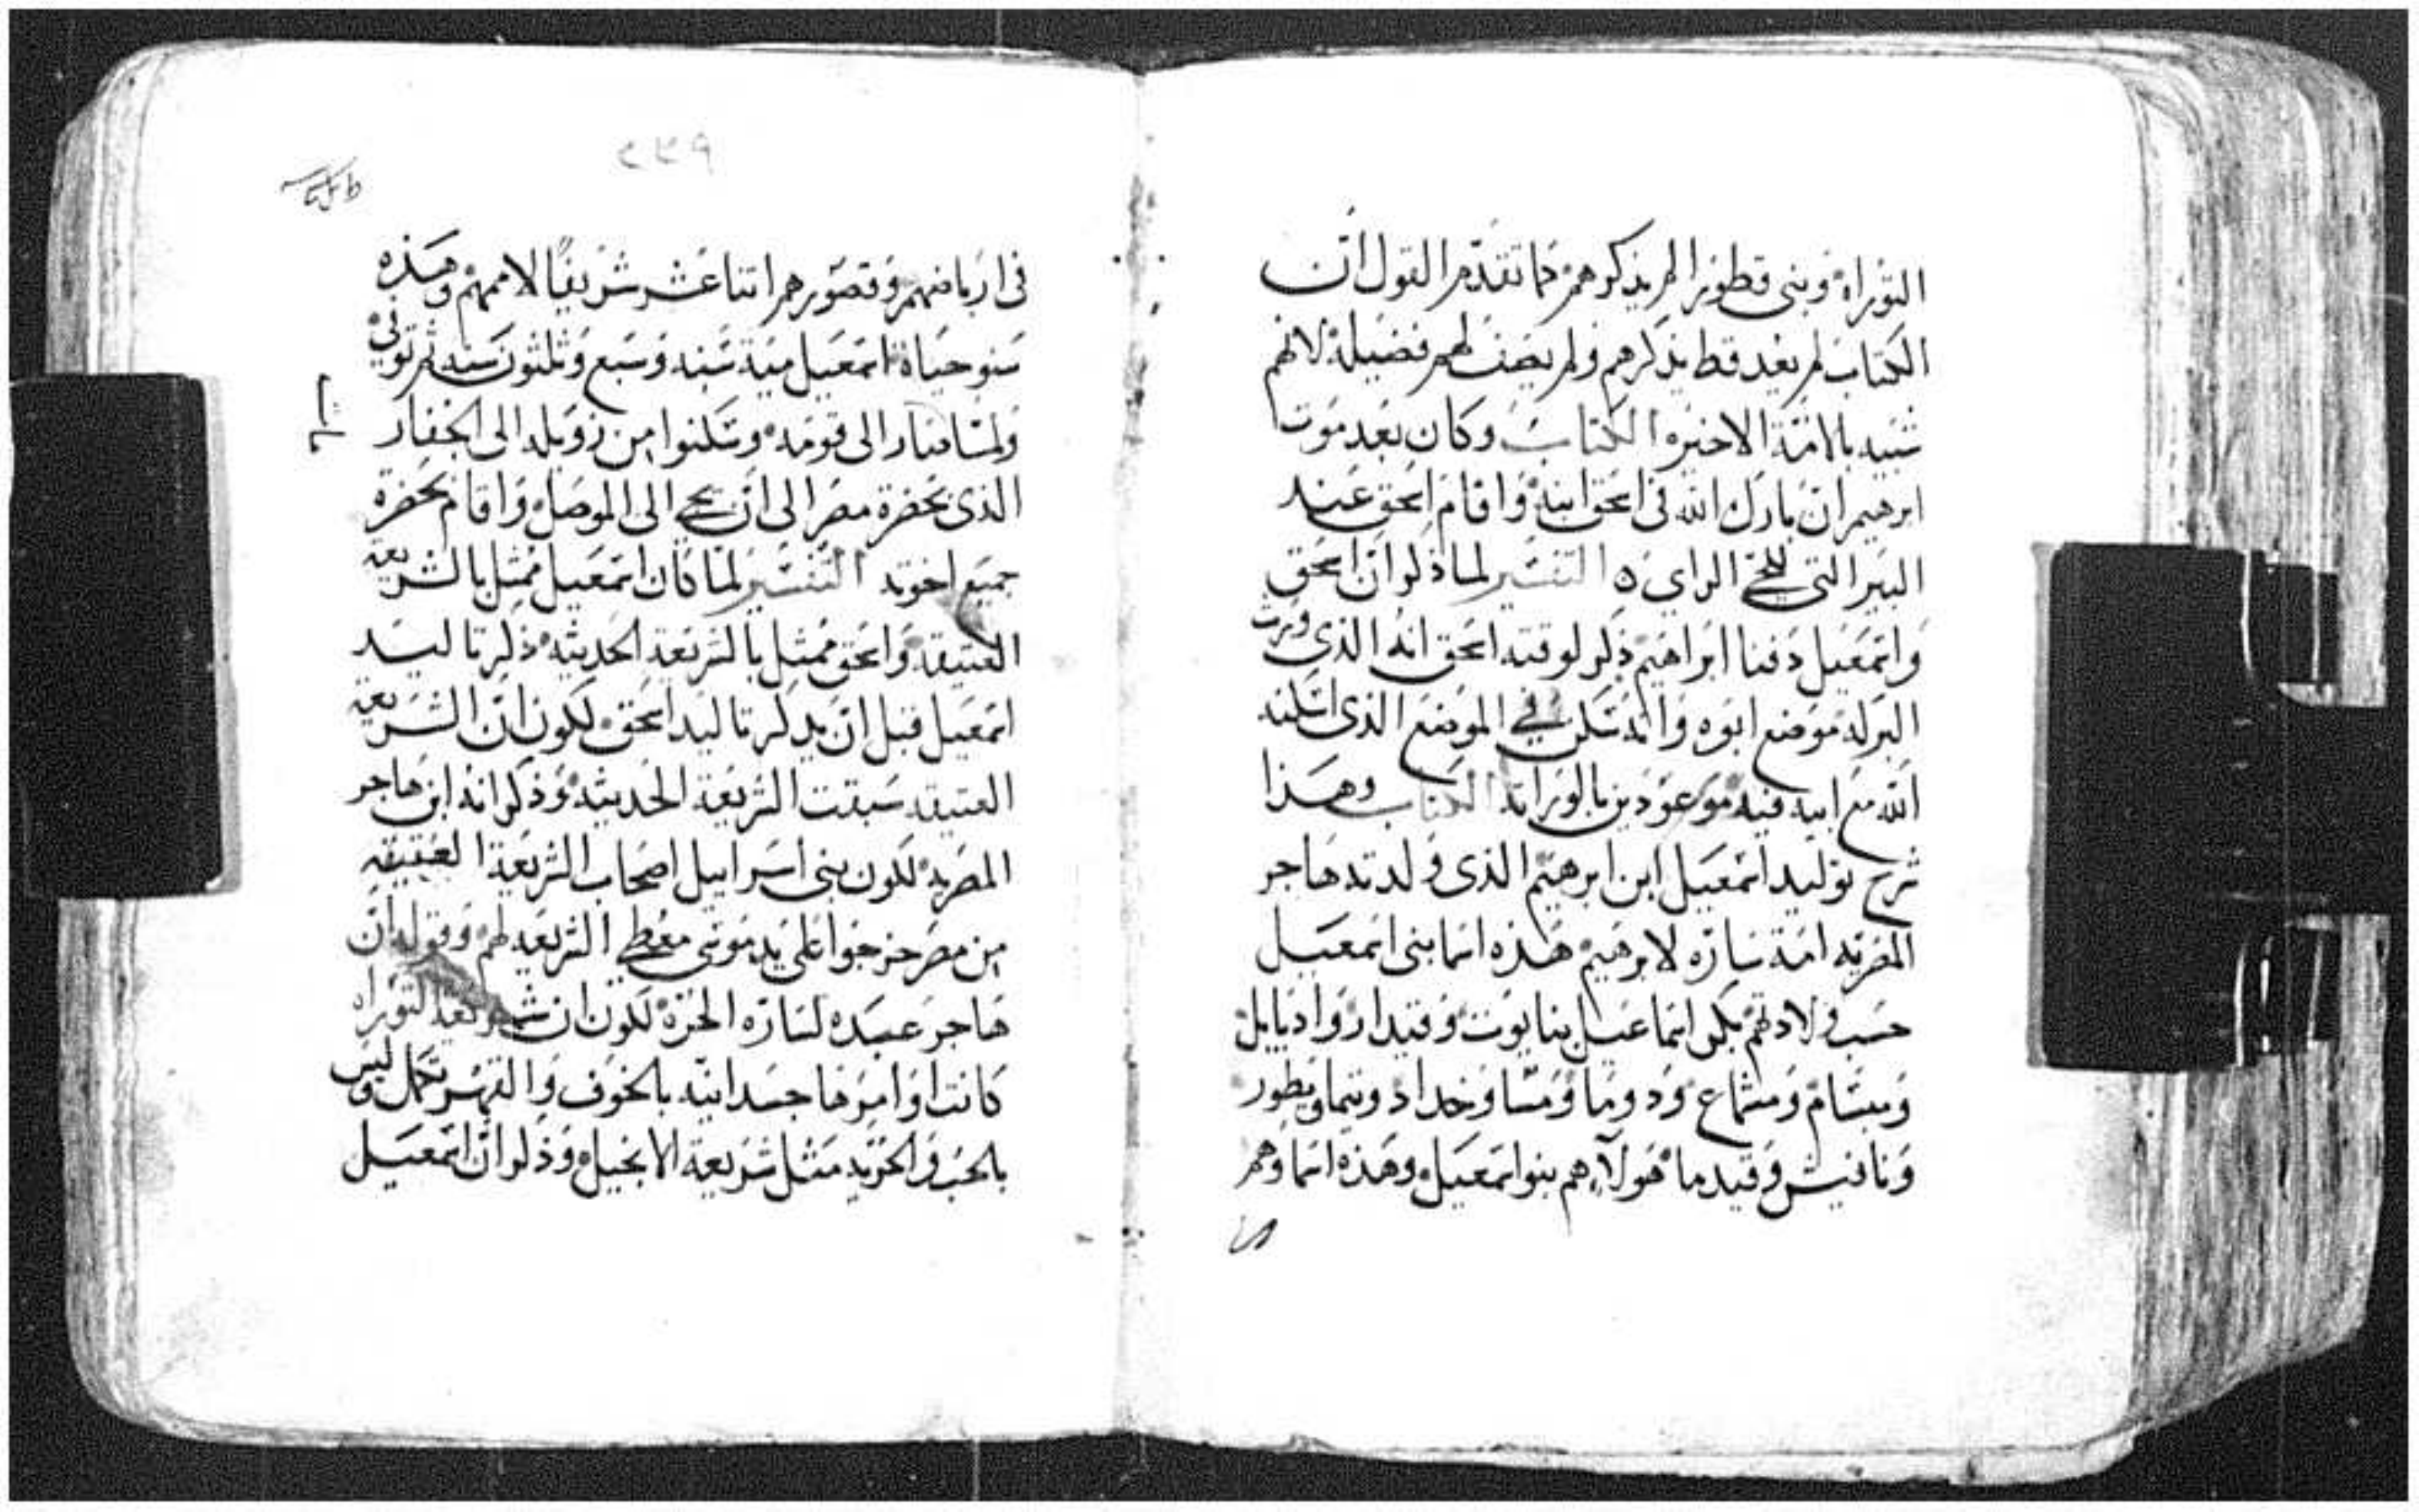 التوراه وبنى قطورا لم يذكرهم كما تقدم القول ان
الكتاب لم يعد قط بذكرهم ولم يصف لهم فضيلة لانهم
شبيه بالامة الاخيره الكتاب وكان بعد موت
ابرهيم ان بارك الله فى اسحق ابنه واقام اسحق عند
البير التى للحي الراي ٥ التفسير لما ذكر ان اسحق
واسمعيل دفنا ابراهيم ذكر لوقته اسحق انه الذى ورث
البركه موضع ابوه وانه سكن في الموضع الذى اسكنه
الله مع ابيه فيه موعودين بالوراثه الكتاب وهذا
شرح توليد اسمعيل ابن ابرهيم الذى ولدته هاجر
المصريه امة ساره لابرهيم هذه اسما بنى اسمعيل
حسب ولادتهم بكر اسماعيل نبايوت وقيدار وادبايل
ومبسام ومشماع ودوما ومسا وحداد وتيما ويطور
ونافيش وقيدما هولاء هم بنو اسمعيل وهذه اسماوهم
فى ارباضهم وقصورهم اتناعشر شريفا لاممهم وهذه
سنو حياة اسمعيل مية سنه وسبع وثلثون سنه ثم توفى
ولما صار الى قومه وسكنوا من زويله الى الجفار
الذى بحضرة مصر الى ان يجي الى الموصل واقام بحضرة
جميع اخوته التفسير لما كان اسمعيل ممثل بالشريعه
العتيقه واسحق ممثل بالشريعه الحديثه ذكر تاليد
اسمعيل قبل ان يذكر تاليد اسحق لكون ان الشريعه
العتيقه سبقت الشريعة الحديثه وذكر انه ابن هاجر
المصريه لكون بنى اسراييل اصحاب الشريعة العتيقه
من مصر خرجوا على يد موسى معطي الشريعه لهم وقوله ان
هاجر عبده لساره الحره لكون ان شريعة التوراه
كانت اوامرها جسدانيه بالخوف والقهر تكمل وليس
بالحب والحريه مثل شريعة الانجيل وذكر ان اسمعيل